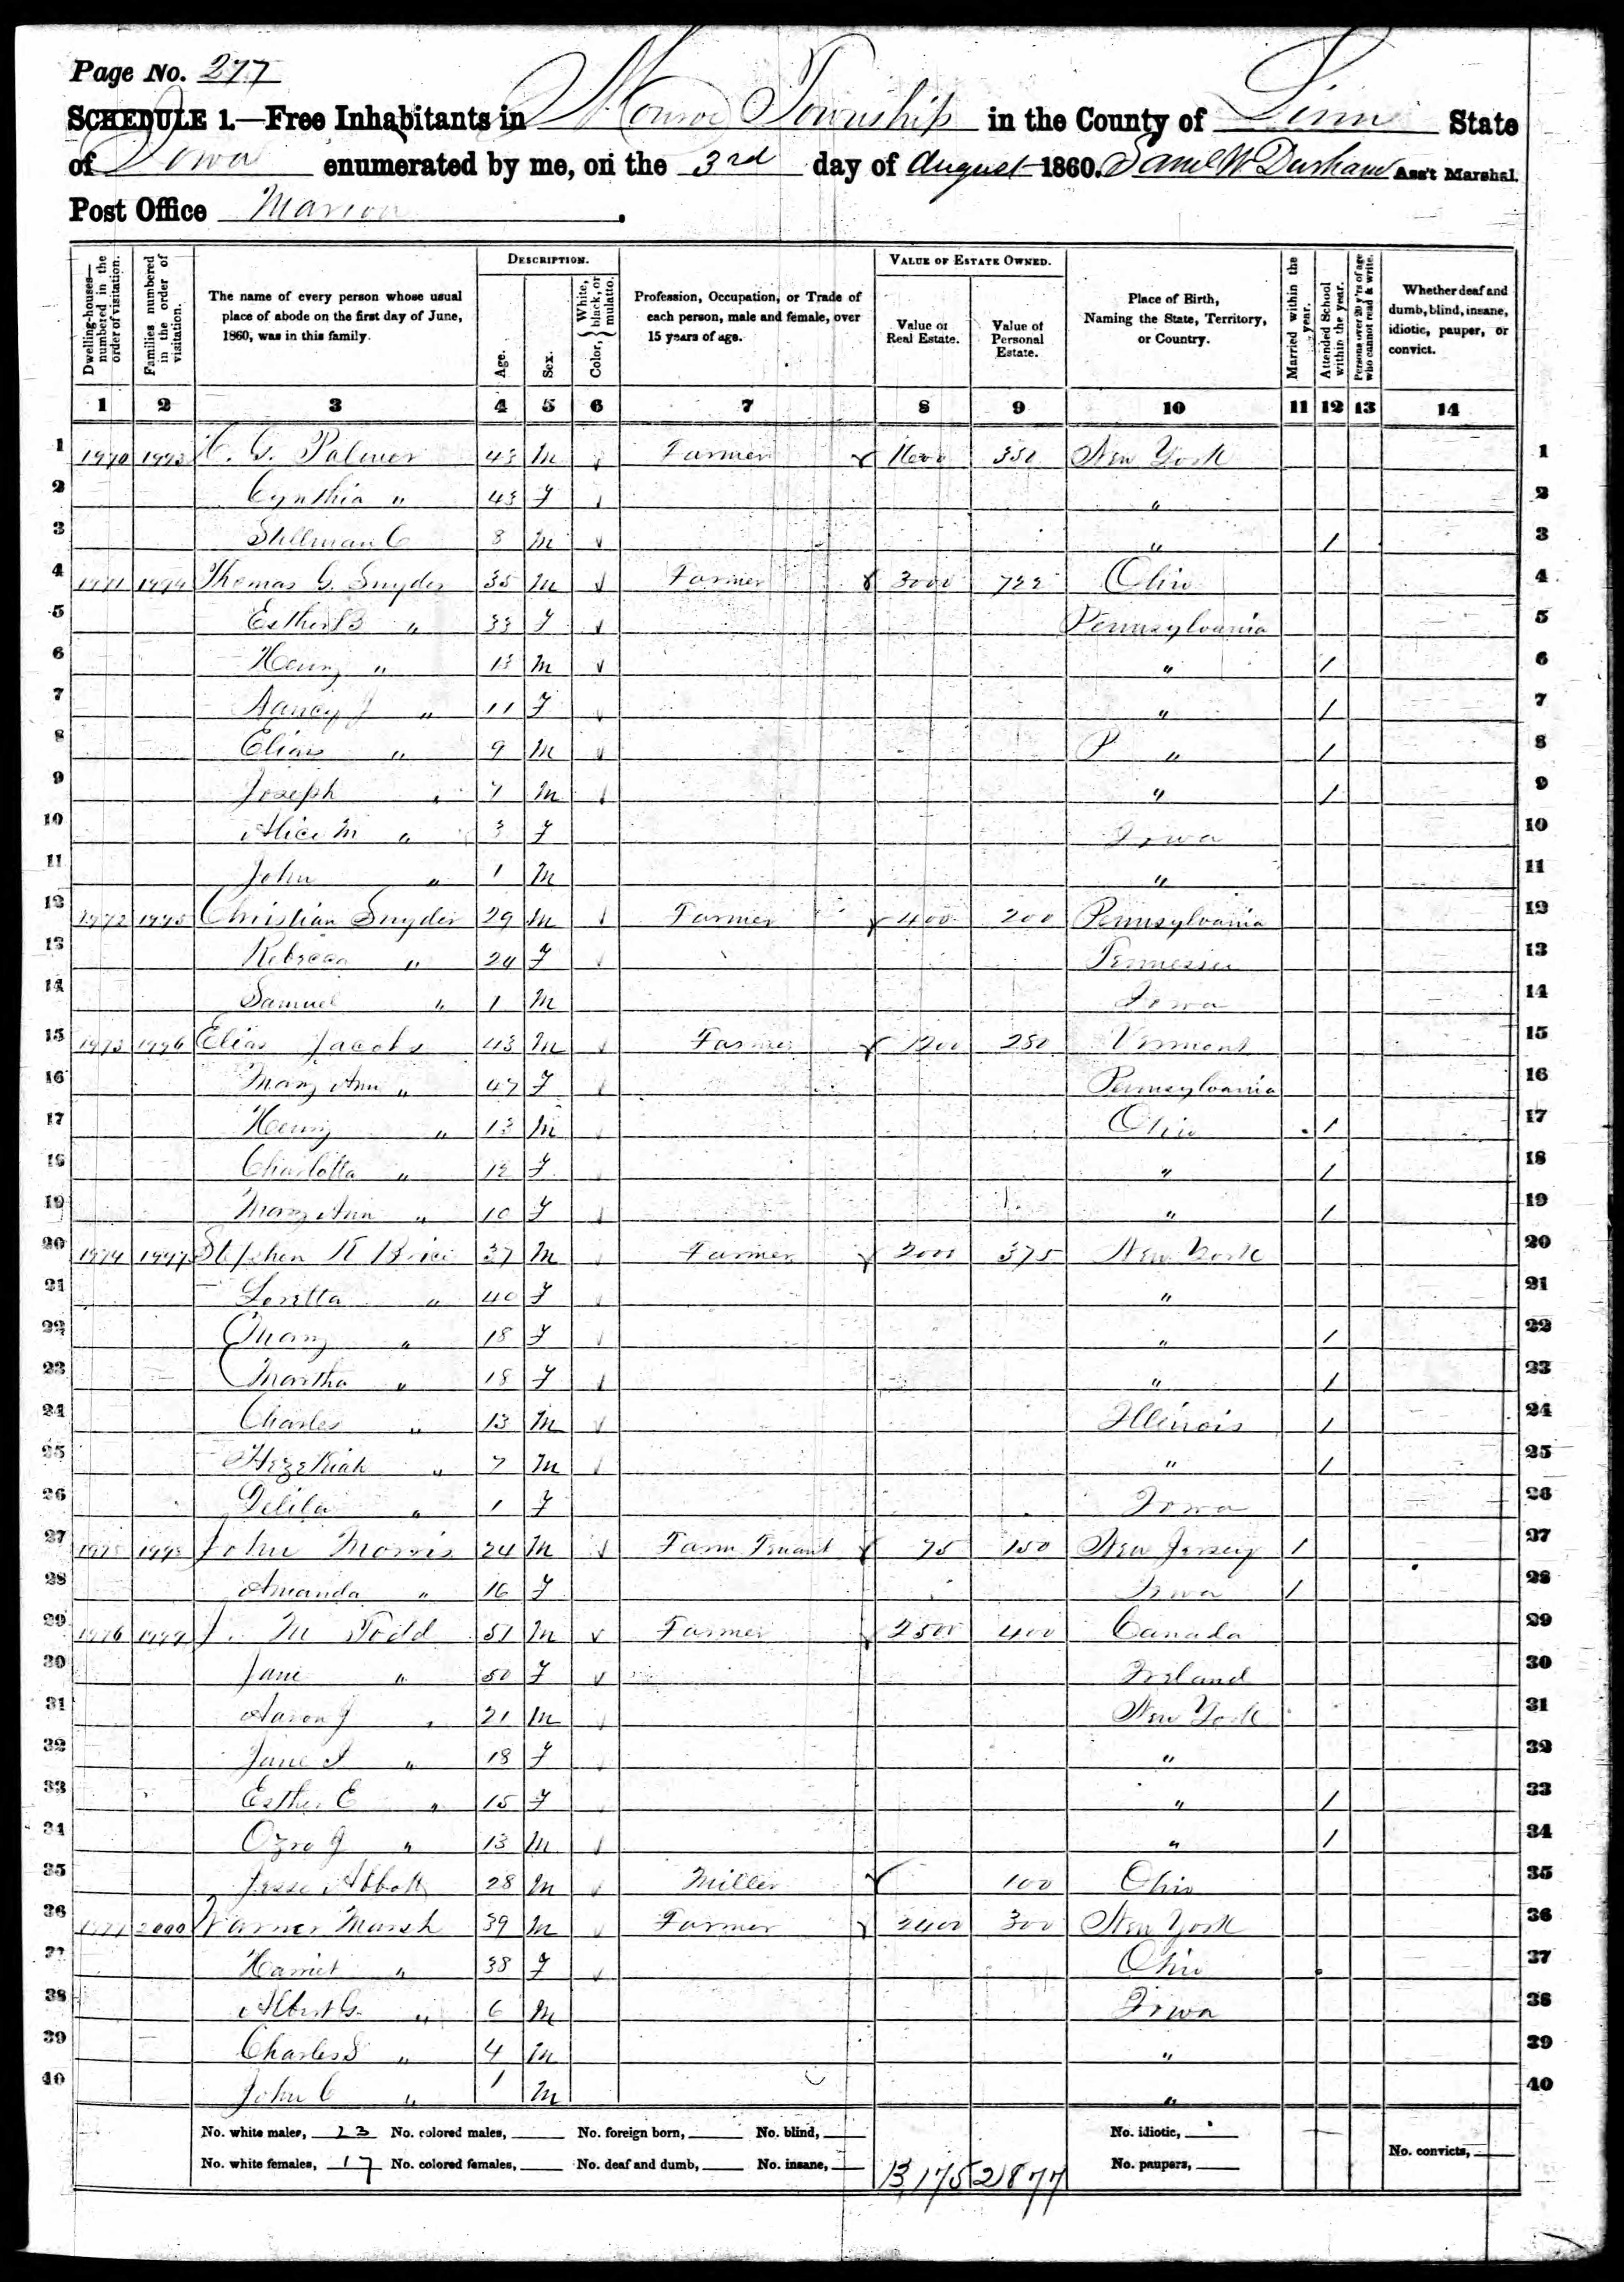 Page No. 277
SCHEDULE 1.—Free Inhabitants in Monroe Township in the County of Linn State
of Iowa enumerated by me, on the 3rd day of August 1860. Saml W Durham Ass't Marshal.
Post Office Marion.
Dwelling-houses—numbered in the order of visitation.
Families numbered in the order of visitation.
The name of every person whose usual place of abode on the first day of June, 1860, was in this family.
DESCRIPTION.
Age.
Sex.
Color, { White, black, or mulatto.
Profession, Occupation, or Trade of each person, male and female, over 15 years of age.
VALUE OF ESTATE OWNED.
Value of Real Estate.
Value of Personal Estate.
Place of Birth, Naming the State, Territory, or Country.
Married within the year.
Attended School within the year.
Persons over 20 y'rs of age who cannot read & write.
Whether deaf and dumb, blind, insane, idiotic, pauper, or convict.
1 2 3 4 5 6 7 8 9 10 11 12 13 14
1 1970 1993 G. Palmer 43 M Farmer 1600 350 New York 1
2 Cynthia " 43 F " 2
3 Stillman C 8 M " / 3
4 1971 1994 Thomas G. Snyder 35 M Farmer 3000 722 Ohio 4
5 Esther B " 33 F Pennsylvania 5
6 Henry " 13 M " / 6
7 Nancy J " 11 F " / 7
8 Elias " 9 M P " / 8
9 Joseph " 7 M " / 9
10 Alice M " 3 F Iowa 10
11 John " 1 M " 11
12 1972 1995 Christian Snyder 29 M Farmer 400 200 Pennsylvania 12
13 Rebecca " 24 F Tennessee 13
14 Samuel " 1 M Iowa 14
15 1973 1996 Elias Jacobs 43 M Farmer 1200 280 Vermont 15
16 Mary Ann " 47 F Pennsylvania 16
17 Henry " 13 M Ohio / 17
18 Charlotta " 12 F " / 18
19 Mary Ann " 10 F " / 19
20 1974 1997 Stephen K Brice 37 M Farmer 2000 375 New York 20
21 Loretta " 40 F " 21
22 Mary " 18 F " / 22
23 Martha " 18 F " / 23
24 Charles " 13 M Illinois / 24
25 Hezekiah " 7 M " / 25
26 Delila " 1 F Iowa 26
27 1975 1998 John Morris 24 M Farm Tenant 75 150 New Jersey / 27
28 Amanda " 16 F Iowa / 28
29 1976 1999 J. M Todd 51 M Farmer 2500 400 Canada 29
30 Jane " 50 F Ireland 30
31 Aaron J " 21 M New York 31
32 Jane I " 18 F " 32
33 Esther E " 15 F " / 33
34 Ozro J " 13 M " / 34
35 Jesse Abbott 28 M Miller 100 Ohio 35
36 1977 2000 Warner Marsh 39 M Farmer 2400 300 New York 36
37 Harriet " 38 F Ohio 37
38 Albert G. " 6 M Iowa 38
39 Charles S " 4 M " 39
40 John C " 1 M " 40
No. white males, 23 No. colored males, No. foreign born, No. blind, No. idiotic,
No. white females, 17 No. colored females, No. deaf and dumb, No. insane, 13,175 2877 No. paupers, No. convicts,